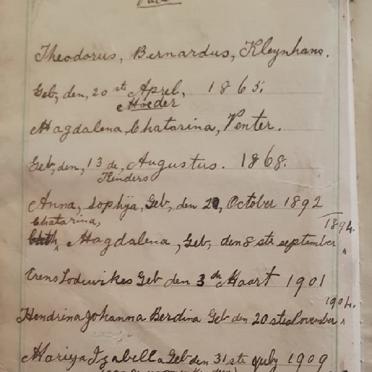 Vader
Theodorus, Bernardus, Kleynhans.
Geb, den, 20 ste Aprel, 1865.
Moeder
Magdalena, Chatarina, Venter.
Geb, den, 13 de, Augustus. 1868.
Kinders
Anna, Sophija, Geb, den 2, October 1892
Chatarina,
Magdalena, Geb, den 8 ste september 1894.
Lodewikes Geb den 3 de Maart 1901
Hendrina Johanna Berdina Geb den 20 ste November 1904.
Mariya Izabella Geb den 31 ste july 1909